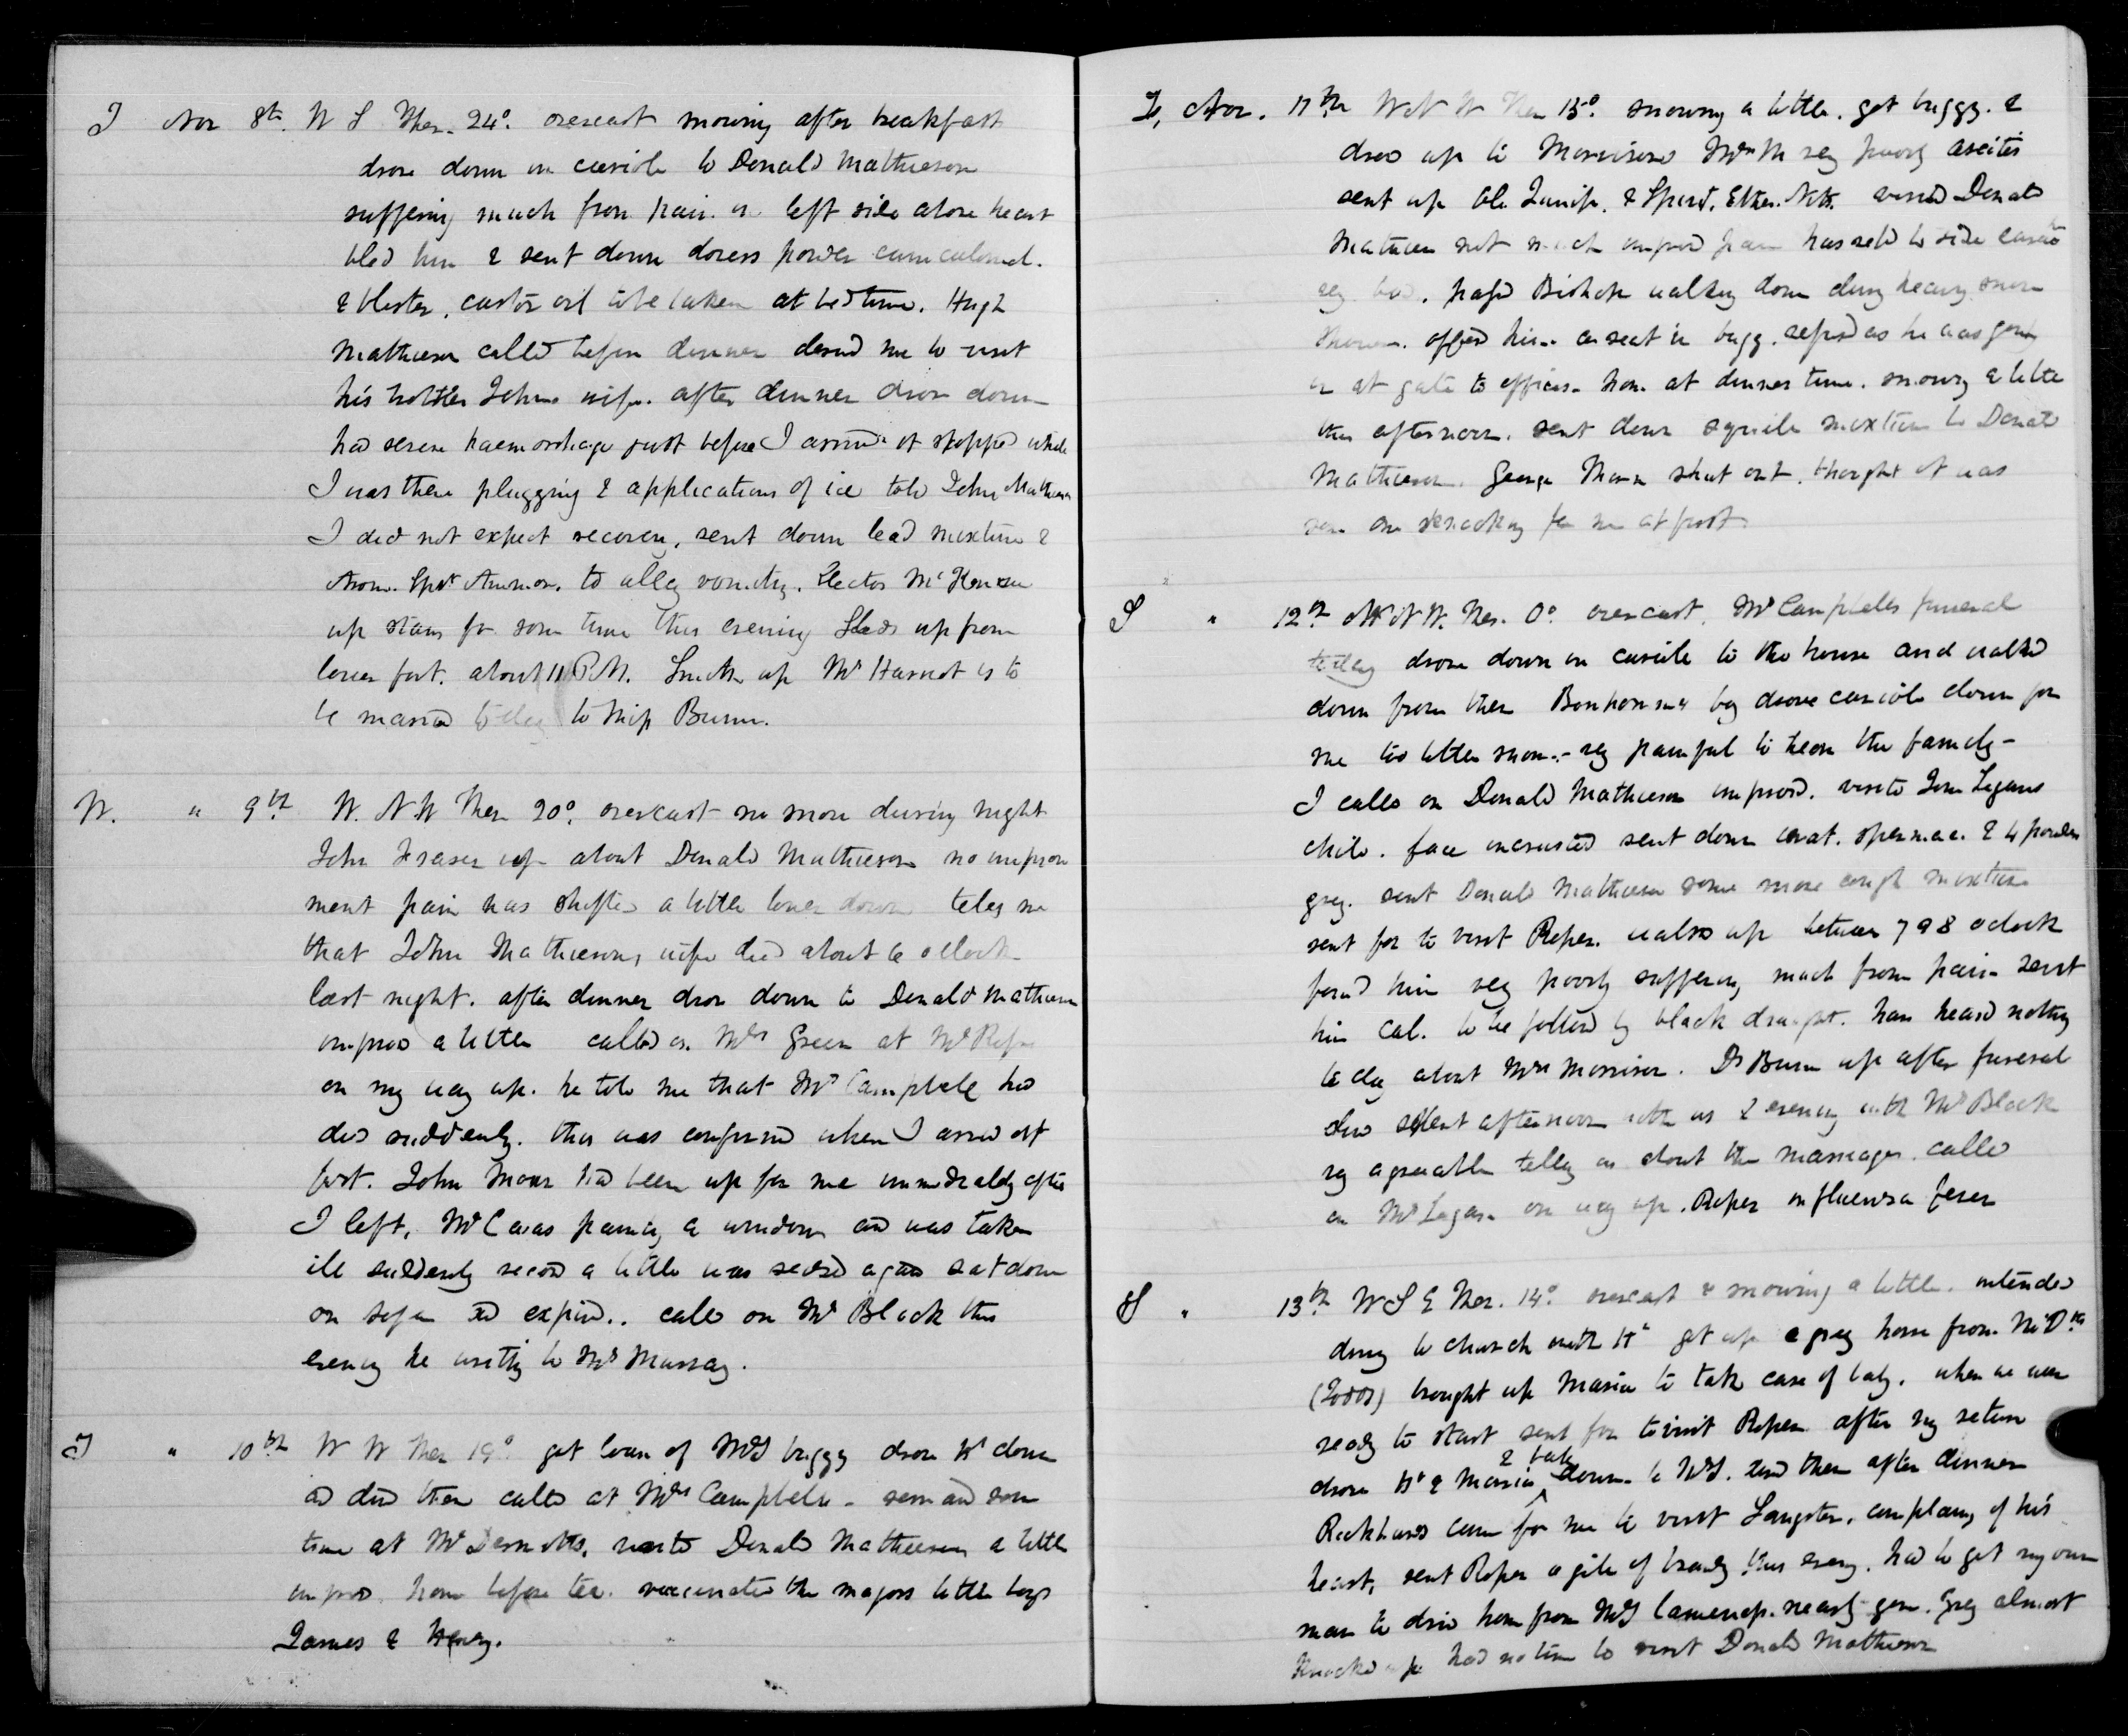 T Nov 8th. W S Ther. 24°. overcast snowing after breakfast
drove down in cariole to Donald Mathieson
suffering much from pain in left side above heart
bled him & sent down dovers powder cum calomel.
& blister, castor oil to be taken at bedtime. Hugh
Mathieson called before dinner desired me to visit
his brother Johns wife. after dinner drove down
had severe haemorrhage just before I arrived it stopped while
I was there plugging & applications of ice told John Mathieson
I did not expect recovery. sent down lead mixture &
Arom. Spt Ammon. to allay vomiting. Hector McKenzie
up stairs for some time this evening Sleds up from
lower fort. about 11 P.M. Smith up Mr Harriot is to
be married today to Miss Bunn.
W. " 9th W. N W Ther 20°. overcast no more during night
John Fraser up about Donald Mathieson no improve
ment pain has shifted a little lower down tells me
that John Mathiesons wife died about 6 oclock
last night. after dinner drove down to Donald Mathieson
improved a little called on Mrs Green at Mr
on my way up. he told me that Mr Campbell had
died suddenly. this was confirmed when I arrived at
fort. John Moar had been up for me immediately after
I left, Mr C was painting a window and was taken
ill suddenly recovd a little was seized again sat down
on sofa and expired.. called on Mr Black this
evening he writing to Mrs Murray.
T " 10th W W Ther 19° got loan of McD buggy drove Ht down
and there called at Mrs Campbells - remained some
time at McDermotts, visited Donald Mathieson a little
improved home before tea. vaccinated the majors little boys
James & Henry.
F, Nov. 11th W N W Ther 15° snowing a little. got buggy. &
drove up to Morrisons Mrs M very poorly ascites
sent up Ol. Junip. & Spirit. Ether. Nit. visited Donald
Mathieson not much improved pain has retd to side
very bad. passed Bishop walking down during heavy snow
shower. offered him a seat in bugg. refused as he was going
in at gate to officers. home at dinner time. snowing a little
this afternoon. sent down squills mixture to Donald
Mathieson. George Moar shut out. thought it was
some one knocking for me at first.
S " 12th N N W. Ther. 0° overcast. Mr Campbells funeral
today drove down in cariole to the house and walked
down from there Bonhommes boy drove cariole down for
me too little snow. - very painful to hear the family -
I called on Donald Mathieson improved. visited John Logans
child. face incrusted sent down cerat. spermac. & 4 powders
grey. sent Donald Mathieson some more cough mixture
sent for to visit Roper. walked up between 7 & 8 oclock
found him very poorly suffering much from pain sent
him Cal. to be followed by black draught. have heard nothing
to day about Mrs Morrison. Dr Bunn up after funeral
also spent afternoon with us & evening with Mr Black
very agreeable telling us about the marriages. called
on Mr Logan on way up. Roper influenza fever
S " 13th W S E Ther. 14° overcast & snowing a little. intended
driving to church with Ht got up a grey horse from McDtts
(Todds) brought up Maria to take care of baby. when we were
ready to start sent for to visit Roper after my return
drove Ht & Maria & baby down to McD. tead there after dinner
Rickhards came for me to visit Langster, complaing of his
heart, sent Roper a gill of brandy this eveng. had to get my own
man to drive home from McD nearly gone. Grey almost
knocked up had no time to visit Donald Mathieson